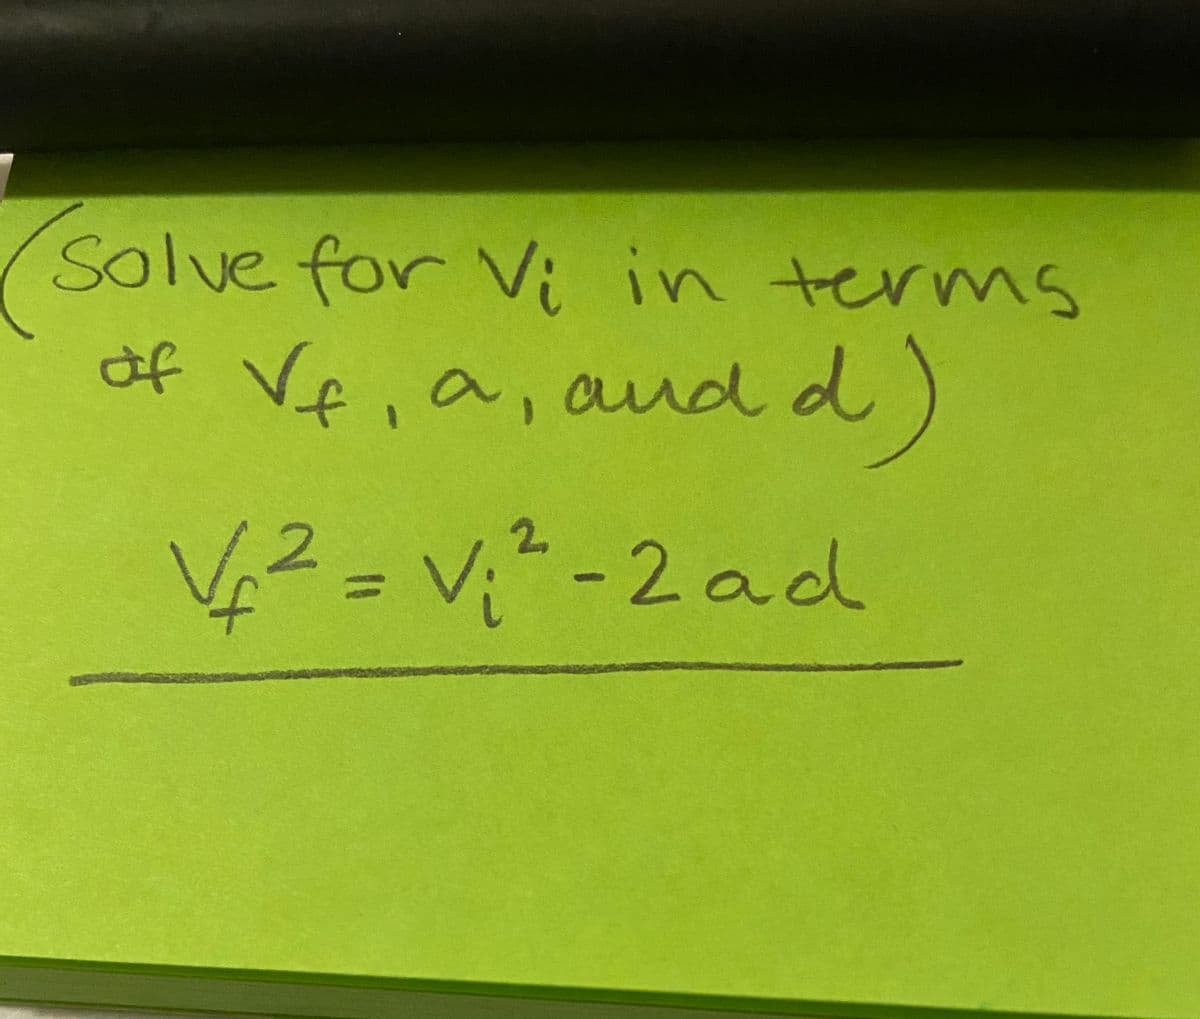 (Solve for Vi in terms
of Vf, a, and d)
Vf² = Vi² - 2ad